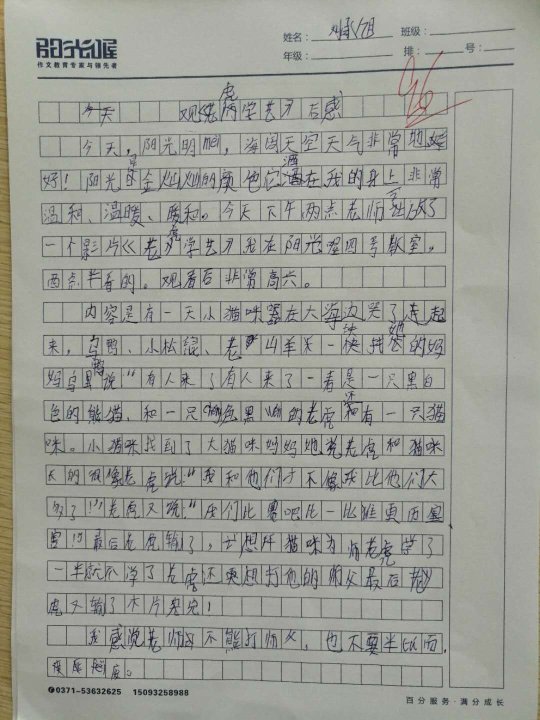 阳光喔
作文教育专家与领先者
姓名: 班级:
年级: 排: 号:
96
今天 观老虎学艺 后感
今天,阳光明mei,海阔天空天气非常地好
好!阳光是金灿灿的颜色它洒在我的身上非常
温和、温暖、暖和。今天下午两点老师放了
一个影片《老虎学艺》我在阳光喔四号教室,
两点半看的。观看后非常高兴。
内容是有一天小猫咪在大海边哭了起
来,乌鸭、小松鼠、老山羊一块找的妈
妈乌鸭说:“有人来了有人来了一看是一只黑白
色的熊猫、和一只色黑的老虎和有一只猫
咪。小猫咪找到了大猫咪妈妈她说老虎和猫咪
大的很像老虎说:“我和他们才不像我比他们大
多了!”老虎又说:“我们比赛吧比一比谁更厉害
害!”最后老虎输了,想拜猫咪为师老虎学了
一半就不学了老虎还要想打他的师父最后老
虎又输了
我感觉老师不能打师父,也不要半途而
废
0371-53632625 15093258988
百分服务·满分成长